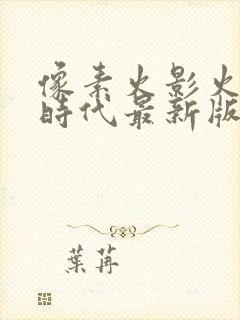 像素火影火
時代最新版
葉苒